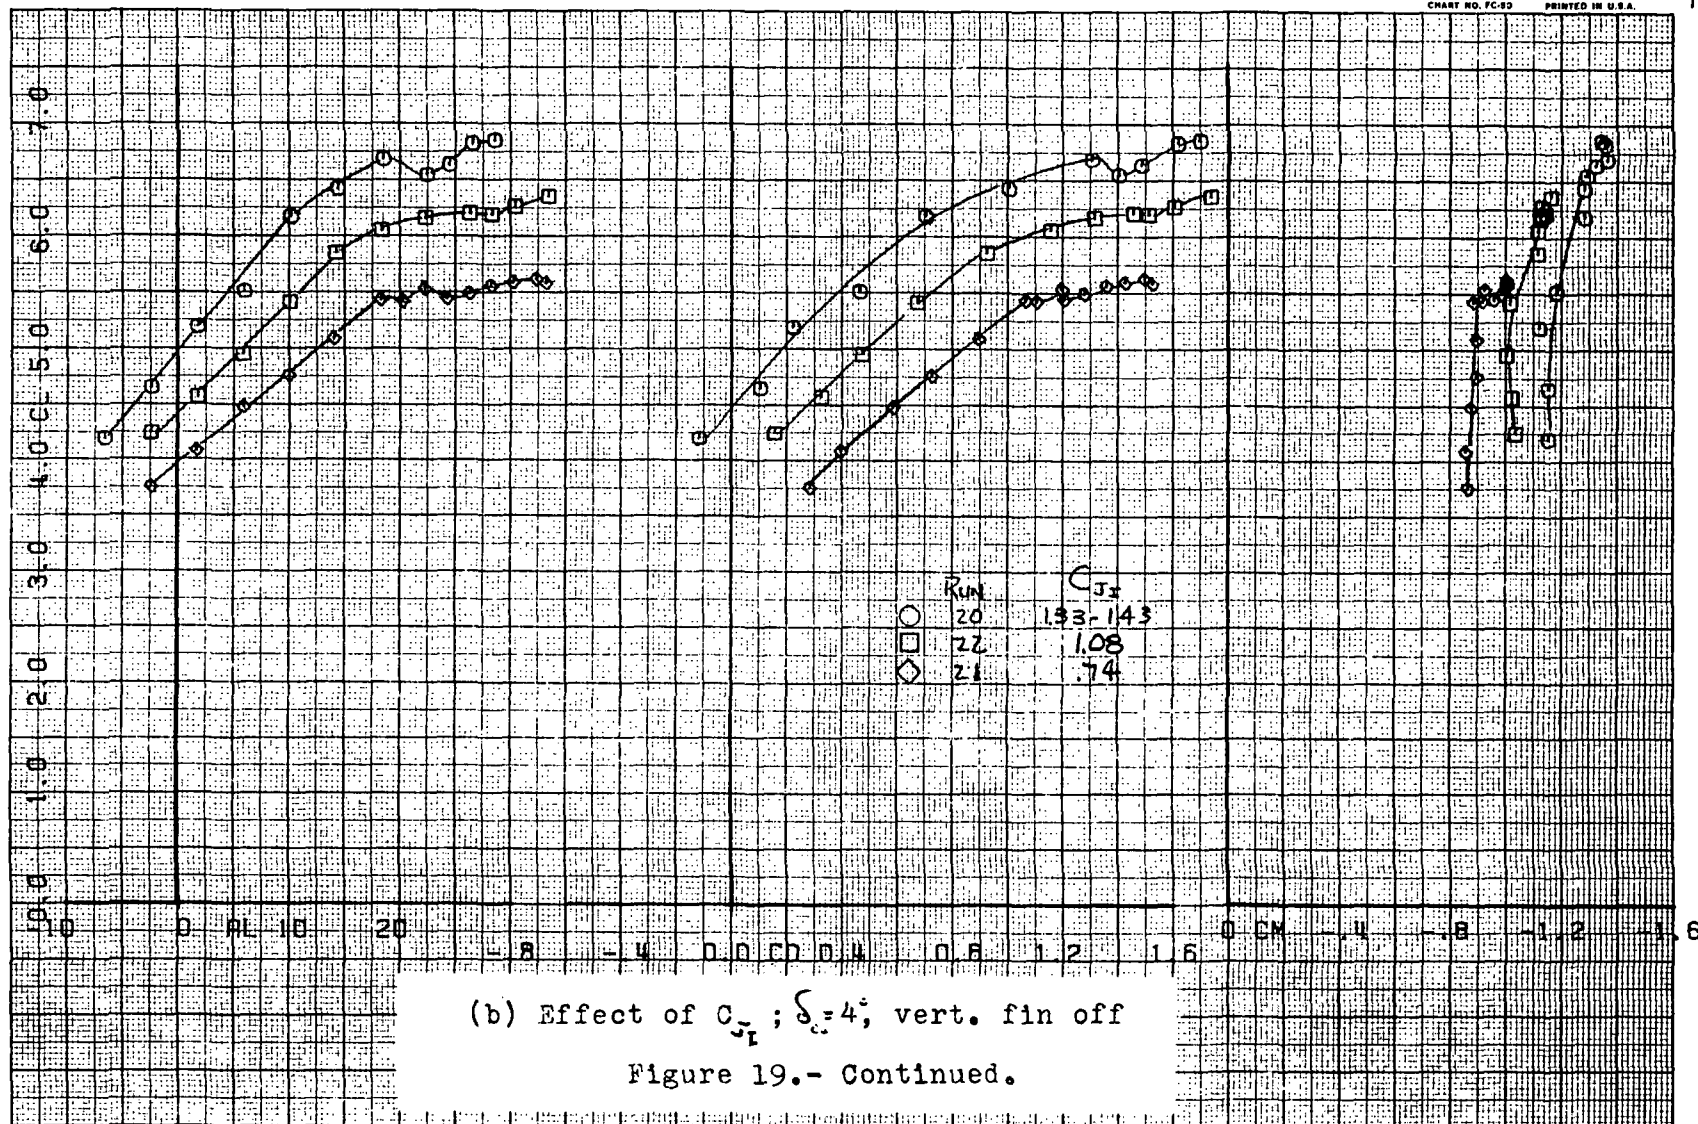 CHART NO. FC-80 PRINTED IN U.S.A.
7.0
6.0
5.0
CL
4.0
3.0
2.0
1.0
0.0
-10 0 AL 10 20
-.8 -.4 0.0 CD 0.4 0.8 1.2 1.6
0 CM -.4 -.8 -1.2 -1.6
RUN CJI
20 1.33-1.43
22 1.08
21 .74
(b) Effect of CJI ; δ =4°, vert. fin off
Figure 19.- Continued.